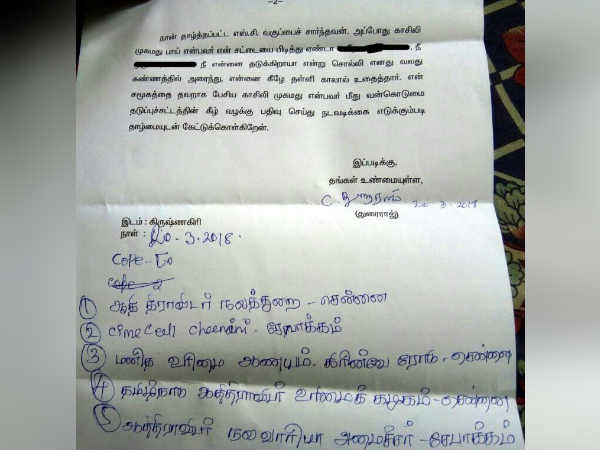 -2-
நான் தாழ்த்தப்பட்ட எஸ்.சி. வகுப்பைச் சார்ந்தவன். அப்போது காசிலி
முகமது பாய் என்பவர் என் சட்டையை பிடித்து ஏண்டா நீ
நீ என்னை தடுக்கிறாயா என்று சொல்லி எனது வலது
கண்ணத்தில் அறைந்து, என்னை கீழே தள்ளி காலால் உதைத்தார். என்
சமூகத்தை தவறாக பேசிய காசிலி முகமது என்பவர் மீது வன்கொடுமை
தடுப்புச்சட்டத்தின் கீழ் வழக்கு பதிவு செய்து நடவடிக்கை எடுக்கும்படி
தாழ்மையுடன் கேட்டுக்கொள்கிறேன்.
இப்படிக்கு,
தங்கள் உண்மையுள்ள,
C. துரைராஜ் 20 3 2018
(துரைராஜ்)
இடம் : கிருஷ்ணகிரி
நாள் : 20.3.2018.
Cope-To
① ஆதி திராவிடர் நலத்துறை - சென்னை
② Cime Cell chennai -
③ மனித உரிமை ஆணையம். ரோடு - சென்னை
④ ஆதிதிராவிடர் உரிமைக் கழகம் - சென்னை
⑤ ஆதிதிராவிடர் அமைச்சர் - சேபாக்கம்